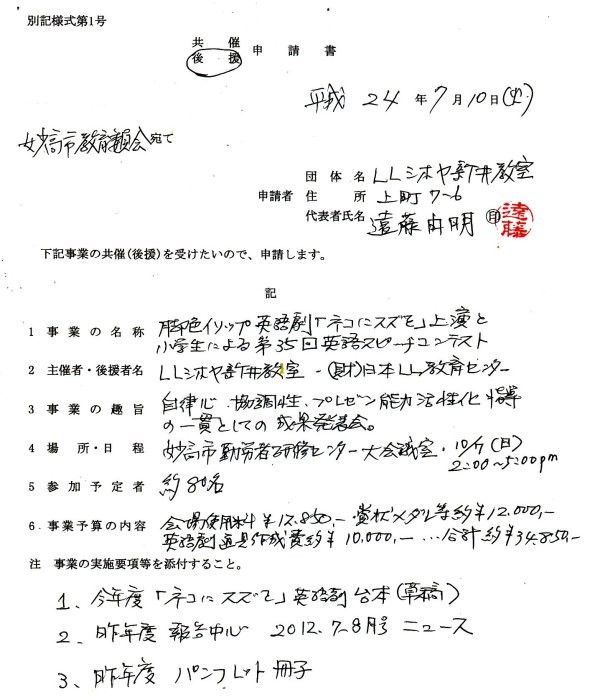 別記様式第1号
共催
後援 申請書
平成 24 年 7 月 10 日(火)
妙高市教育委員会 宛て
団体名 LLシオヤ新井教室
申請者 住所 上町7-6
代表者氏名 遠藤由明 ㊞ 遠藤
下記事業の共催(後援)を受けたいので、申請します。
記
1 事業の名称 脚色イソップ英語劇「ネコにスズを」上演と
小学生による第35回英語スピーチコンテスト
2 主催者・後援者名 LLシオヤ新井教室 - (財)日本LL教育センター
3 事業の趣旨 自律心、協調性、プレゼン能力活性化指導
の一貫としての成果発表会。
4 場所・日程 妙高市勤労者研修センター大会議室・10/7(日)
2:00~5:00pm
5 参加予定者 約80名
6 事業予算の内容 会場使用料¥12,850,- 賞状メダル等約¥12,000,-
英語劇道具作成費約¥10,000,- … 合計約¥34,850,-
注 事業の実施要項等を添付すること。
1、今年度「ネコにスズを」英語劇台本(草稿)
2、昨年度 報告中心 2012.7-8月号 ニュース
3、昨年度 パンフレット冊子